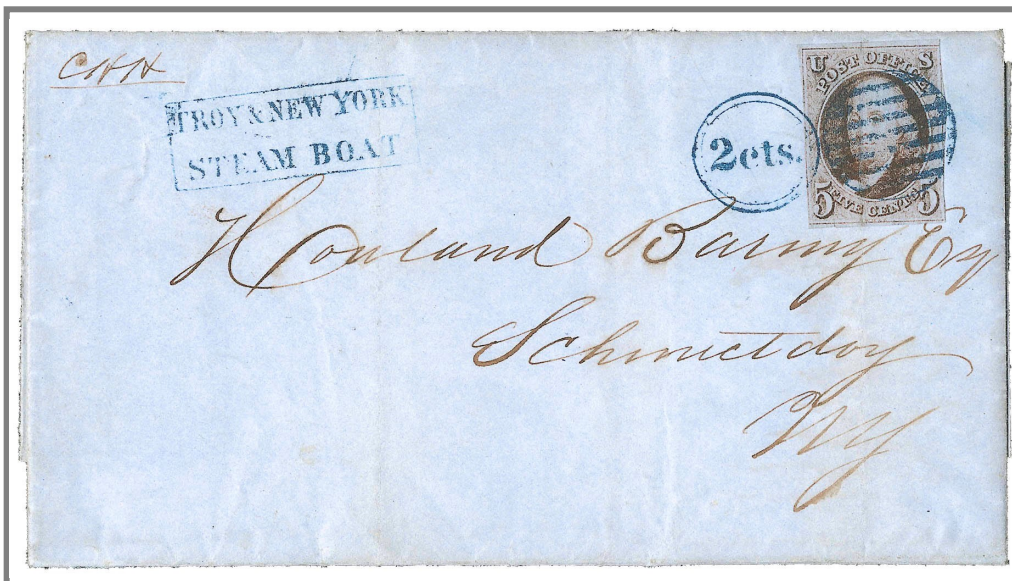 TROY & NEW YORK
STEAM BOAT
2cts.
U S
POST OFFICE
5 FIVE CENTS 5
Howland
Schenectady
NY